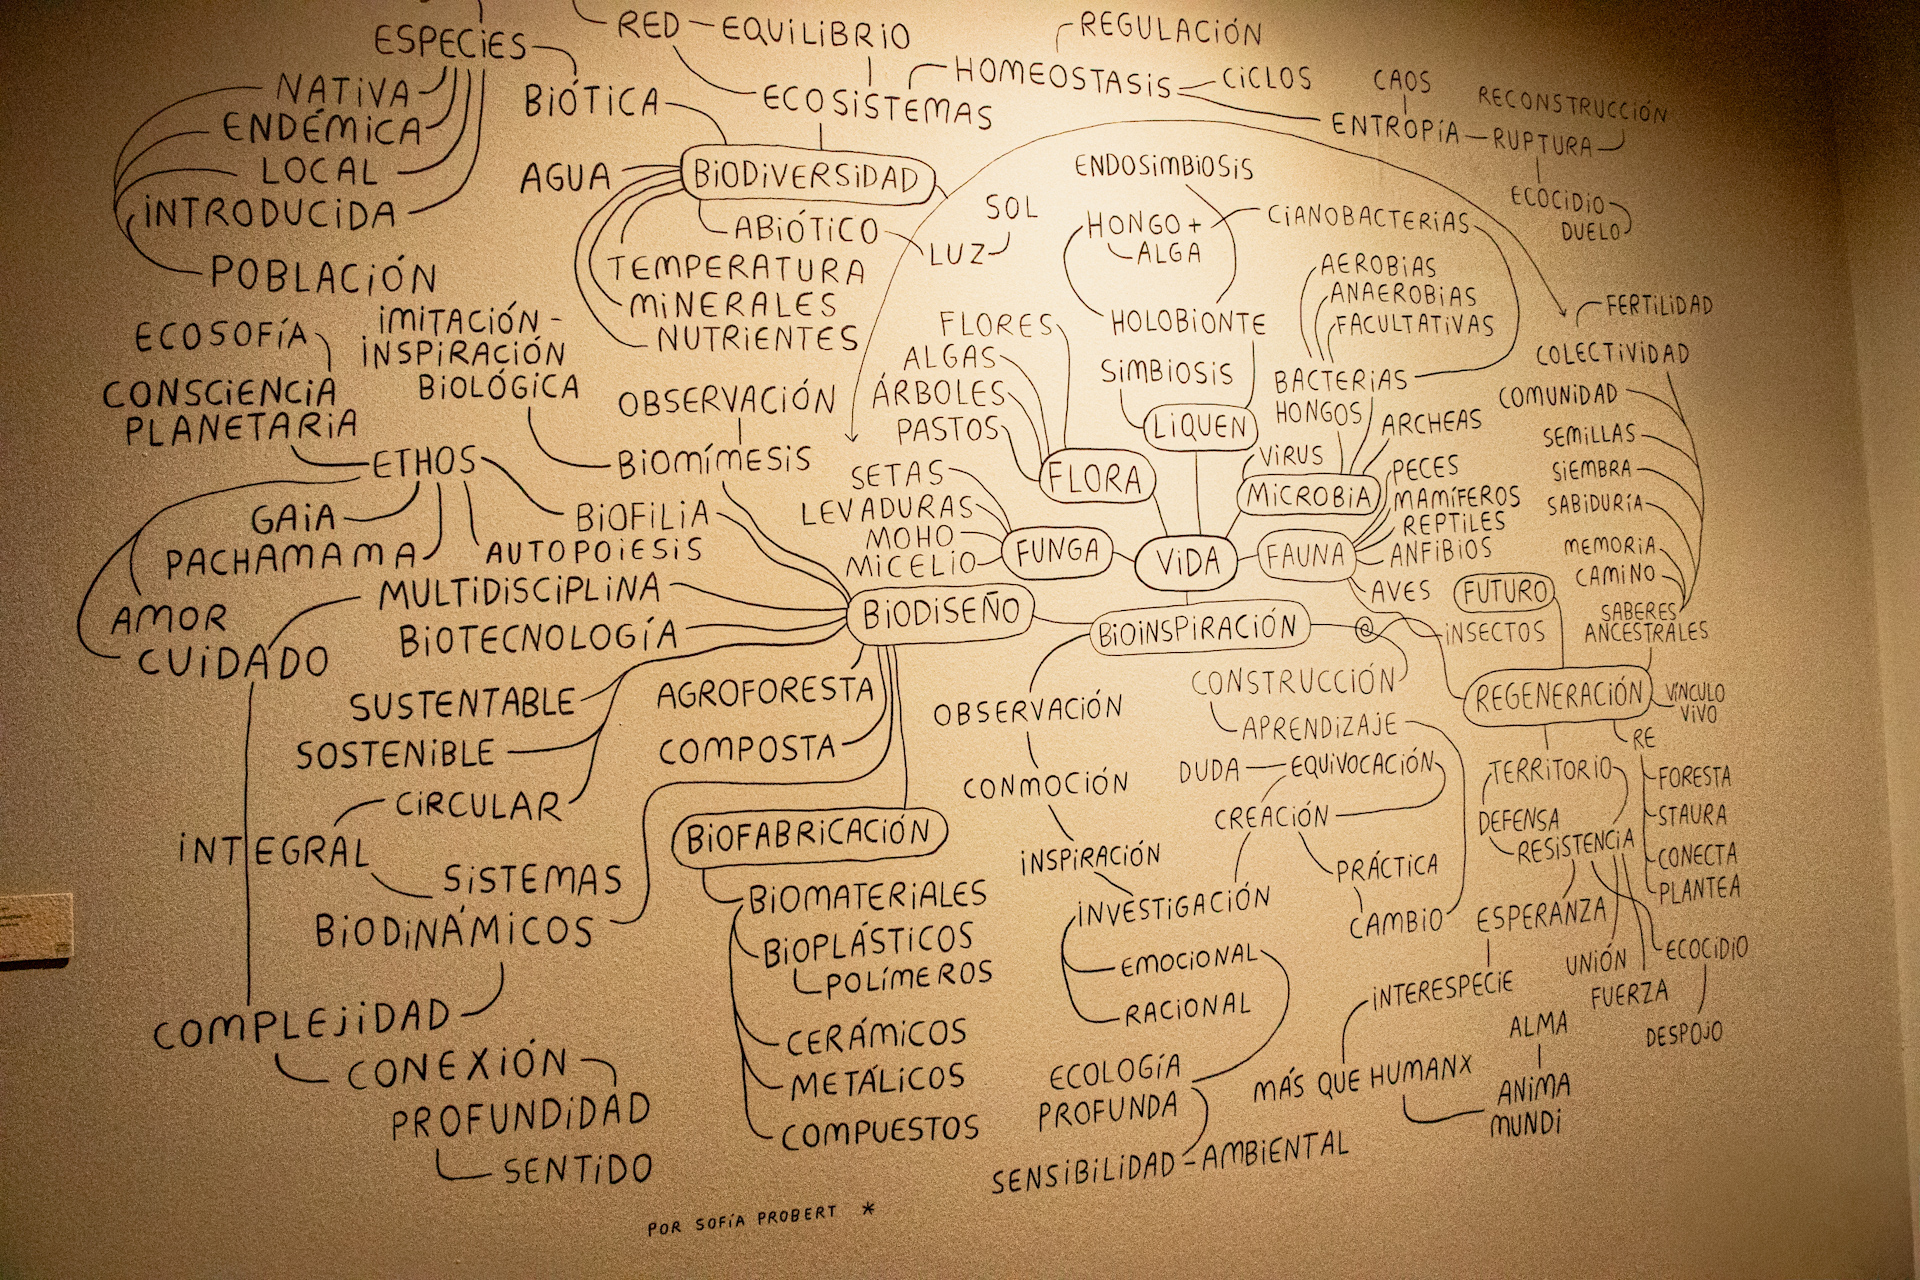 ESPECiES
NATiVA
ENDÉMiCA
LOCAL
iNTRODUCiDA
POBLACiÓN
RED
EQUiLiBRiO
BiÓTiCA
ECOSiSTEMAS
HOMEOSTASiS
REGULACiÓN
CiCLOS
CAOS
ENTROPÍA
RUPTURA
RECONSTRUCCiÓN
ECOCiDiO
DUELO
AGUA
BiODiVERSiDAD
ABiÓTiCO
LUZ
SOL
TEMPERATURA
MiNERALES
NUTRiENTES
ENDOSiMBiOSiS
HONGO +
ALGA
CiANOBACTERiAS
HOLOBiONTE
SiMBiOSiS
LiQUEN
AEROBiAS
ANAEROBiAS
FACULTATiVAS
BACTERiAS
HONGOS
ARCHEAS
ViRUS
MiCROBiA
FLORES
ALGAS
ÁRBOLES
PASTOS
FLORA
SETAS
LEVADURAS
MOHO
MiCELiO
FUNGA
ViDA
FAUNA
PECES
MAMÍFEROS
REPTiLES
ANFiBiOS
AVES
iNSECTOS
FERTiLiDAD
COLECTiViDAD
COMUNiDAD
SEMiLLAS
SiEMBRA
SABiDURÍA
MEMORiA
CAMiNO
SABERES
ANCESTRALES
FUTURO
REGENERACiÓN
VÍNCULO
ViVO
RE
FORESTA
STAURA
CONECTA
PLANTEA
TERRiTORiO
DEFENSA
RESiSTENCiA
ESPERANZA
UNiÓN
FUERZA
ECOCiDiO
DESPOJO
iNTERESPECiE
MÁS QUE HUMANX
ALMA
ANiMA
MUNDi
ECOSOFÍA
CONSCiENCiA
PLANETARiA
iMiTACiÓN -
iNSPiRACiÓN
BiOLÓGiCA
OBSERVACiÓN
BiOMÍMESiS
ETHOS
GAiA
PACHAMAMA
AUTOPOiESiS
BiOFiLiA
AMOR
CUiDADO
MULTiDiSCiPLiNA
BiOTECNOLOGÍA
BiODiSEÑO
SUSTENTABLE
SOSTENiBLE
CiRCULAR
iNTEGRAL
SiSTEMAS
BiODiNÁMiCOS
COMPLEJiDAD
CONEXiÓN
PROFUNDiDAD
SENTiDO
AGROFORESTA
COMPOSTA
BiOFABRiCACiÓN
BiOMATERiALES
BiOPLÁSTiCOS
POLÍMEROS
CERÁMiCOS
METÁLiCOS
COMPUESTOS
BiOiNSPiRACiÓN
@
OBSERVACiÓN
CONMOCiÓN
iNSPiRACiÓN
iNVESTiGACiÓN
EMOCiONAL
RACiONAL
ECOLOGÍA
PROFUNDA
SENSiBiLiDAD - AMBiENTAL
CONSTRUCCiÓN
APRENDiZAJE
DUDA
EQUiVOCACiÓN
CREACiÓN
PRÁCTiCA
CAMBiO
POR SOFÍA PROBERT *